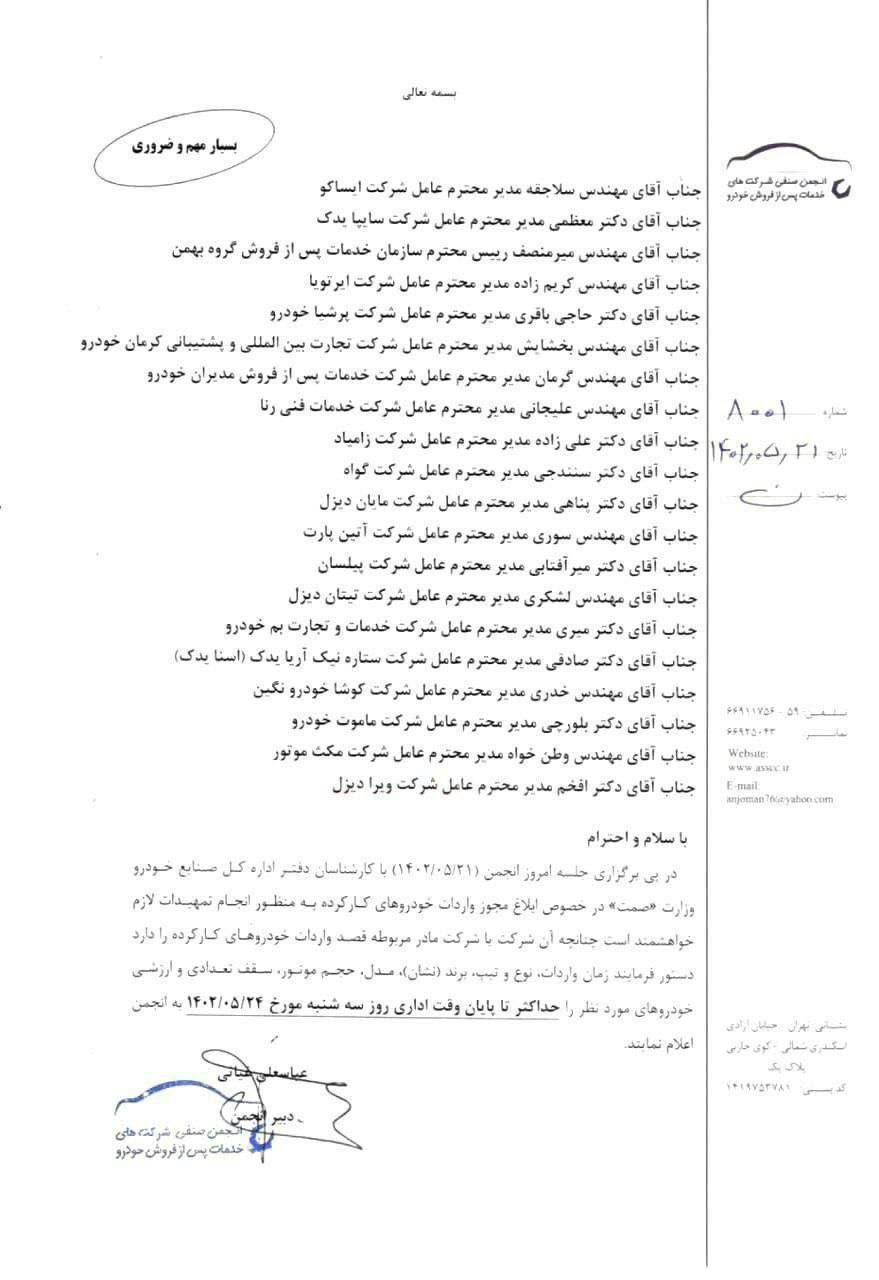 بسمه تعالی
بسیار مهم و ضروری
انجمن صنفی شرکت های
خدمات پس از فروش خودرو
جناب آقای مهندس سلاجقه مدیر محترم عامل شرکت ایساکو
جناب آقای دکتر معظمی مدیر محترم عامل شرکت سایپا یدک
جناب آقای مهندس میرمنصف رییس محترم سازمان خدمات پس از فروش گروه بهمن
جناب آقای مهندس کریم زاده مدیر محترم عامل شرکت ایرتویا
جناب آقای دکتر حاجی باقری مدیر محترم عامل شرکت پرشیا خودرو
جناب آقای مهندس بخشایش مدیر محترم عامل شرکت تجارت بین المللی و پشتیبانی کرمان خودرو
جناب آقای مهندس گرمان مدیر محترم عامل شرکت خدمات پس از فروش مدیران خودرو
جناب آقای مهندس علیجانی مدیر محترم عامل شرکت خدمات فنی رنا
جناب آقای دکتر علی زاده مدیر محترم عامل شرکت زامیاد
جناب آقای دکتر سنندجی مدیر محترم عامل شرکت گواه
جناب آقای دکتر پناهی مدیر محترم عامل شرکت مایان دیزل
جناب آقای مهندس سوری مدیر محترم عامل شرکت آتین پارت
جناب آقای دکتر میرآفتابی مدیر محترم عامل شرکت پیلسان
جناب آقای مهندس لشکری مدیر محترم عامل شرکت تیتان دیزل
جناب آقای دکتر میری مدیر محترم عامل شرکت خدمات و تجارت بم خودرو
جناب آقای دکتر صادقی مدیر محترم عامل شرکت ستاره نیک آریا یدک (اسنا یدک)
جناب آقای مهندس خدری مدیر محترم عامل شرکت کوشا خودرو نگین
جناب آقای دکتر بلورچی مدیر محترم عامل شرکت ماموت خودرو
جناب آقای مهندس وطن خواه مدیر محترم عامل شرکت مکث موتور
جناب آقای دکتر افخم مدیر محترم عامل شرکت ویرا دیزل
با سلام و احترام
در پی برگزاری جلسه امروز انجمن (۱۴۰۲/۰۵/۲۱) با کارشناسان دفتر اداره کل صنایع خودرو
وزارت «صمت» در خصوص ابلاغ مجوز واردات خودروهای کارکرده به منظور انجام تمهیدات لازم
خواهشمند است چنانچه آن شرکت یا شرکت مادر مربوطه قصد واردات خودروهای کارکرده را دارد
دستور فرمایند زمان واردات، نوع و تیپ، برند (نشان)، مدل، حجم موتور، سقف تعدادی و ارزشی
خودروهای مورد نظر را حداکثر تا پایان وقت اداری روز سه شنبه مورخ ۱۴۰۲/۰۵/۲۴ به انجمن
اعلام نمایند.
عباسعلی غیاثی
دبیر انجمن
انجمن صنفی شرکت های
خدمات پس از فروش خودرو
شماره ۸۰۰۱
تاریخ ۱۴۰۲،۰۵،۲۱
پیوست
تلفن: ۵۹ - ۶۶۹۱۱۷۵۶
نمابر ۶۶۹۲۵۰۴۳
Website:
www.asscc.ir
E-mail:
anjoman76@yahoo.com
نشانی: تهران - خیابان آزادی
اسکندری شمالی - کوی حاربی
پلاک یک
کد پستی: ۱۴۱۹۷۵۳۷۸۱